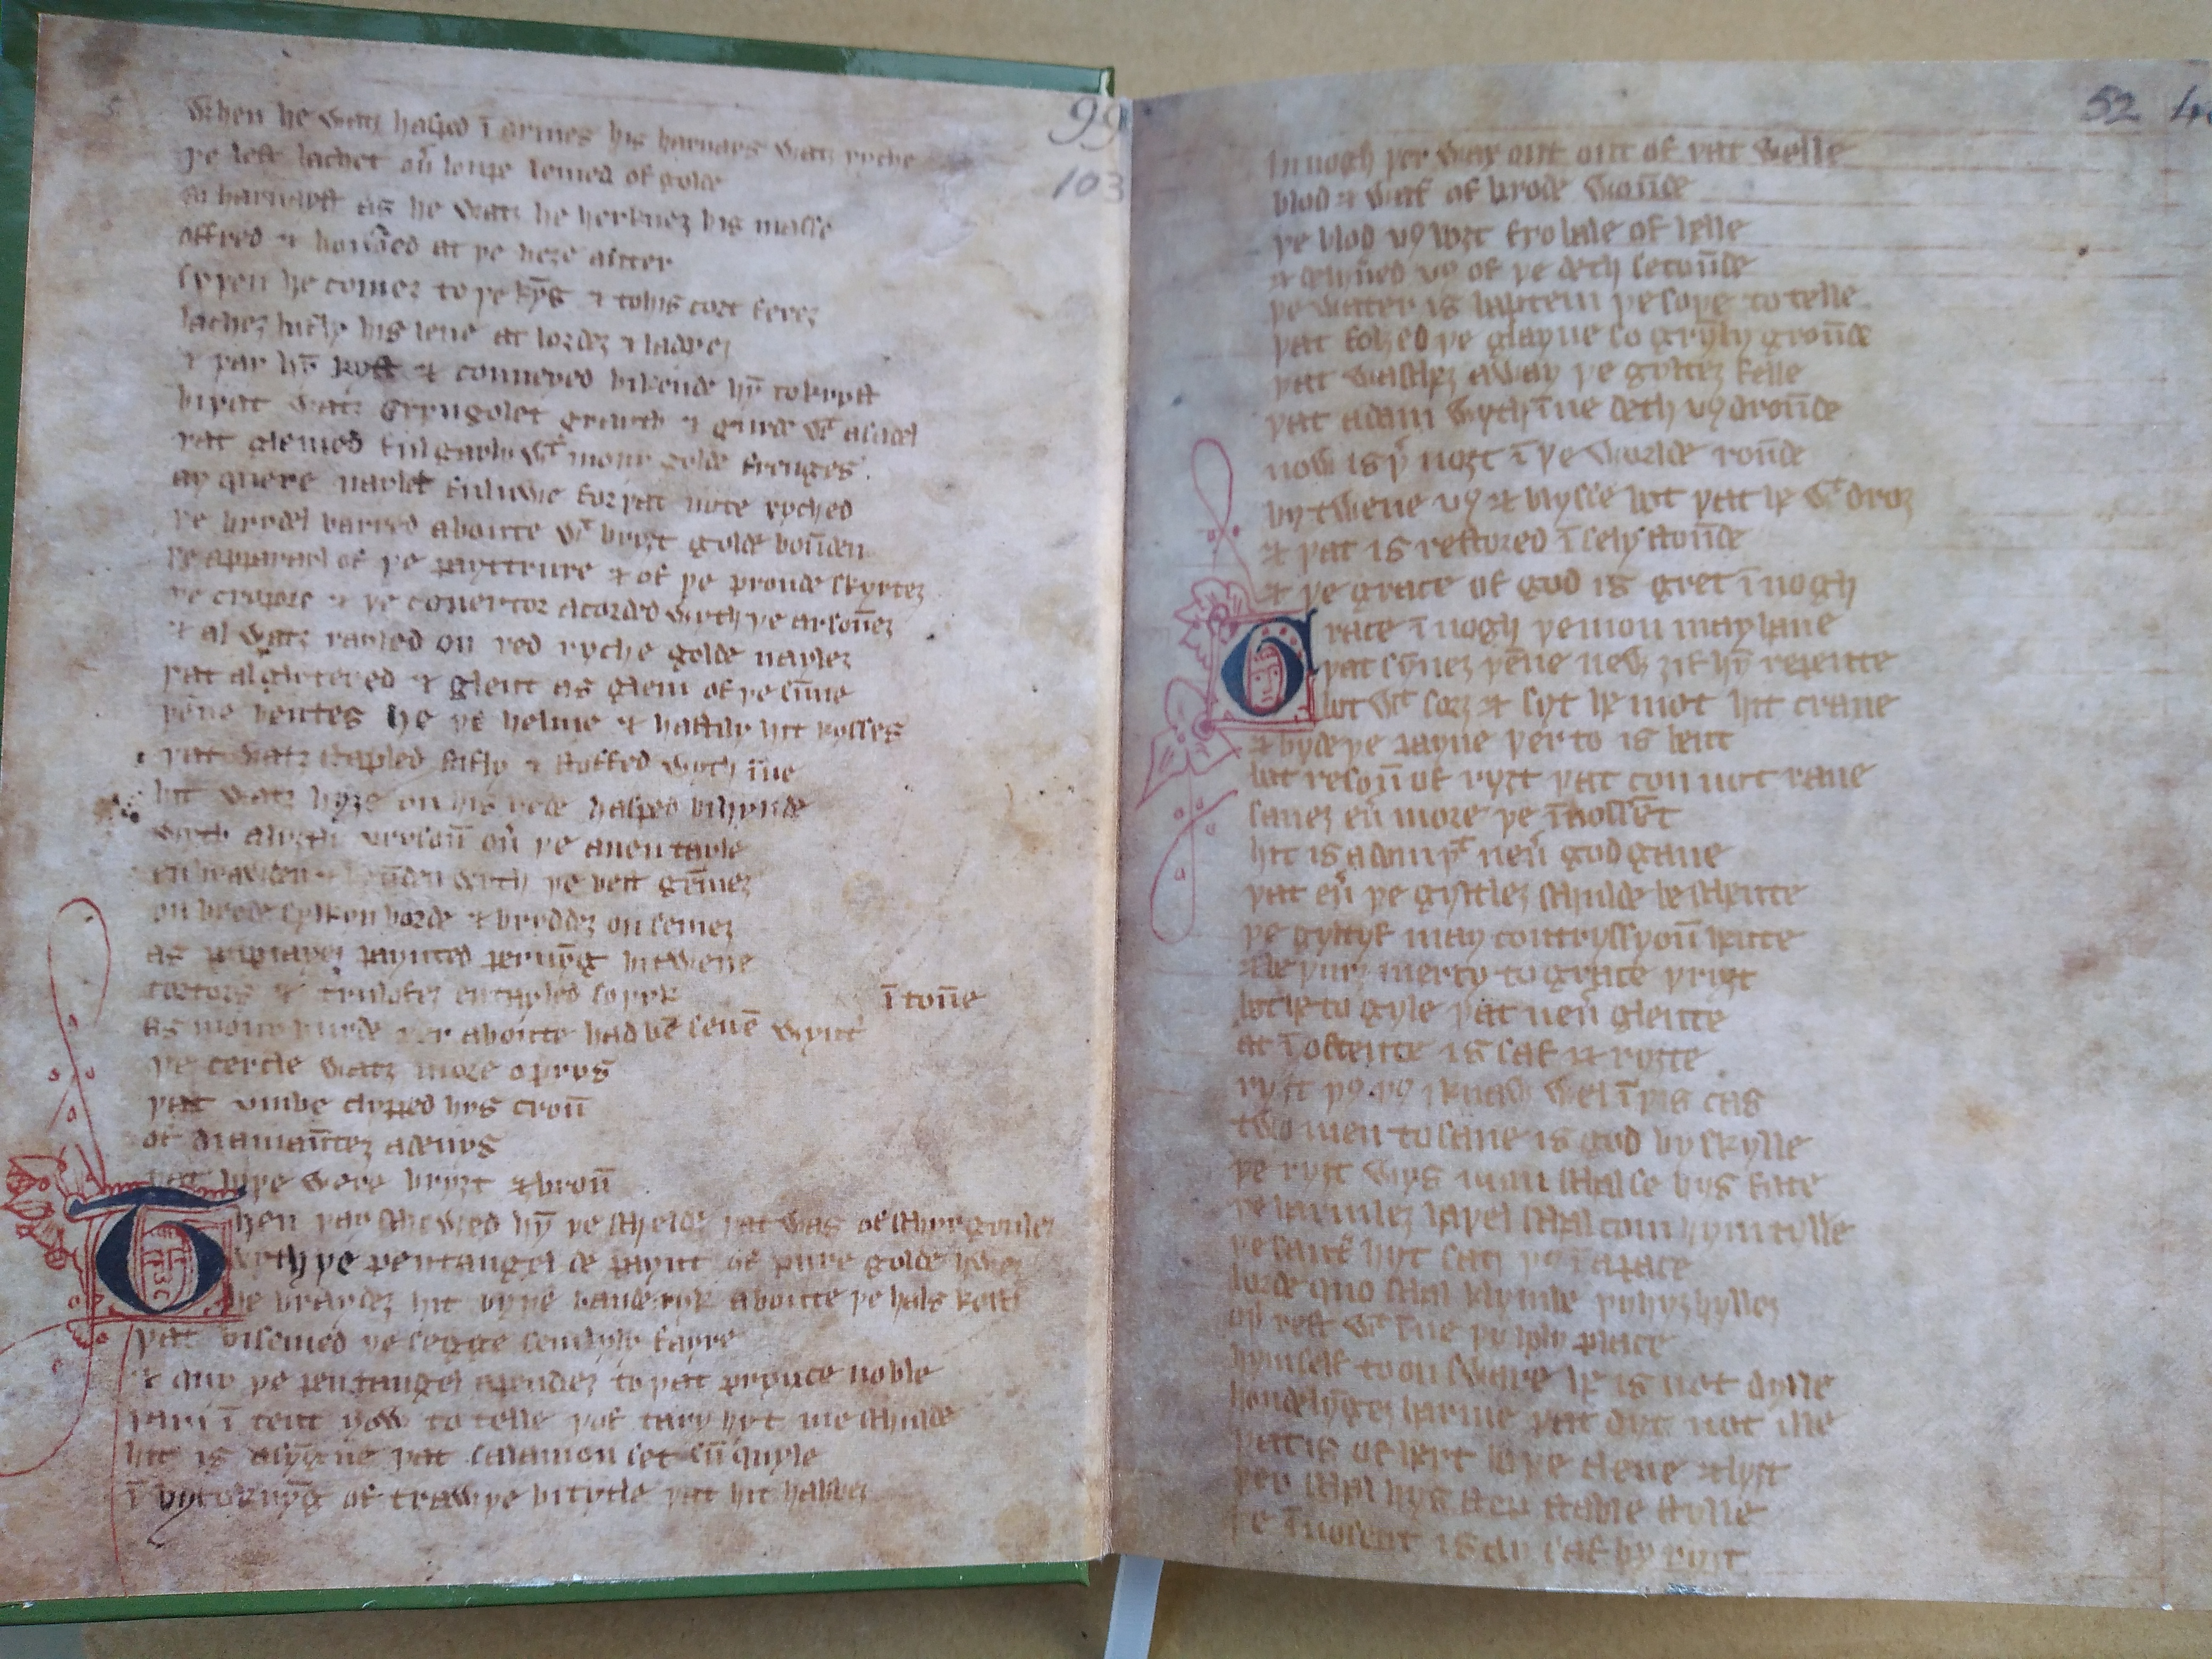 99
103
When he watȝ hasped ī armes his harnays watȝ ryche
þe lest lachet ou̅ loupe lemed of golde
So harnayst as he watȝ he herkneȝ his masse
offred & honoūed at þe heȝe auter
syþen he comeȝ to þe kȳg & to his cort fereȝ
lacheȝ lufly his leue at lordeȝ & ladyeȝ
& þay hȳ kyst & conueyed bikende hȳ to kryst
bi þat watȝ gryngolet grayth & gurde wt a sadel
þat glemed ful gayly wt mony golde frenges
ay quere naylet ful nwe for þat note ryched
þe brydel barred aboute wt bryȝt golde boūden
þe apparayl of þe payttrure & of þe proude skyrteȝ
þe cropore & þe couertor acorded wyth þe arsoūeȝ
& al watȝ rayled on red ryche golde nayleȝ
þat al glytered & glent as glem of þe sūne
þēne hentes he þe helme & hastily hit kysses
þat watȝ stapled stifly & stoffed wyth īne
hit watȝ hyȝe on his hede hasped bihynde
wyth a lyȝtli vrysoū ou̅ þe auentayle
enbrawden & boūden wyth þe best gēmeȝ
on brode sylkyn borde & bryddeȝ on semeȝ
as papiayeȝ paynted pernyg bitwene
tortors & trulofeȝ entayled so þyk
as mony burde þer aboute had bē seuē wynt ī toūe
þe cercle watȝ more o prys
þat vmbe clypped hys croū
of diamaūteȝ a deuys
þat boþe were bryȝt & broū
Then þay schewed hȳ þe schelde þat was of schyr gouleȝ
wyth þe pentangel depaynt of pure golde hweȝ
he braydeȝ hit by þe bauderyk aboute þe hals kestes
þat bisemed þe segge semlyly fayre
& quy þe pentangel apendeȝ to þat prynce noble
I am ī tent yow to telle þof tary hyt me schulde
hit is a sygne þat salamon set sūquyle
ī bytoknyg of trawþe bi tytle þat hit habbeȝ
52
Innogh þer wax out out of þat welle
blod & wat of brode woūde
þe blod v9 boȝt fro bale of helle
& delyūed v9 of þe deth secoūde
þe water is baptem þe soþe to telle
þat folȝed þe glayue so grȳly groūde
þat wascheȝ away þe gylteȝ felle
þat adam wyth īne deth v9 droūde
now is þ noȝt ī þe worlde roūde
bytwene v9 & blysse bot þat he wt droȝ
& þat is restored ī sely stoūde
& þe grace of god is gret īnogh
Grace īnogh þe mon may haue
þat sȳneȝ þēne new ȝif hȳ repente
bot wt sorȝ & syt he mot hit craue
& byde þe payne þer to is bent
bot resoū of ryȝt þat con not raue
saueȝ eū more þe īnossēt
hit is a dom þt neū god gaue
þat eū þe gyltleȝ schulde be schente
þe gyltyf may contryssyoū hente
& be þurȝ mercy to grace þryȝt
bot he to gyle þat neū glente
at īoscente is saf & ryȝte
ryȝt þ9 þ9 I knaw wel ī þis cas
two men to saue is god by skylle
þe ryȝt wys man schal se hys face
þe harmleȝ haþel schal com hym tylle
þe sauter hyt satȝ þ9 ī a pace
lorde quo schal klymbe þy hyȝ hylleȝ
oþ rest wt īne þy holy place
hymself to onsware he is not dylle
hondelȳgeȝ harme þat dyt not ille
þat is of hert boþe clene & lyȝt
þer schal hys step stable stylle
þe īnosent is ay saf by ryȝt